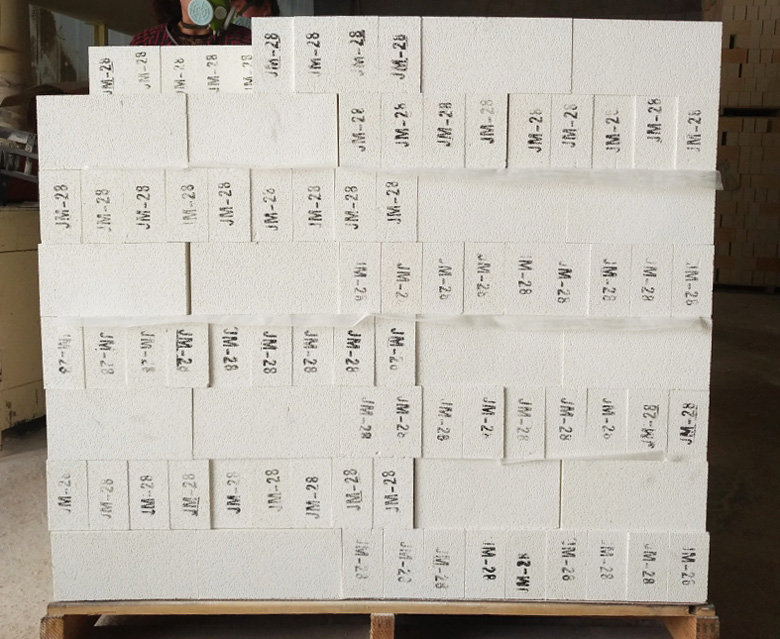 JM-28 JM-28 JM-28 JM-28 JM-28 JM-28 JM-28 JM-28 JM-28
JM-28 JM-28 JM-28 JM-28 JM-28 JM-28 JM-28 JM-28 JM-28
JM-28 JM-28 JM-28 JM-28 JM-28 JM-28 JM-28 JM-28 JM-28
JM-28 JM-28 JM-28 JM-28 JM-28 JM-28 JM-28 JM-28 JM-28
JM-28 JM-28 JM-28 JM-28 JM-28 JM-28 JM-28 JM-28 JM-28
JM-28 JM-28 JM-28 JM-28 JM-28 JM-28 JM-28 JM-28 JM-28
JM-28 JM-28 JM-28 JM-28 JM-28 JM-28 JM-28 JM-28 JM-28
JM-28 JM-28 JM-28 JM-28 JM-28 JM-28 JM-28 JM-28 JM-28